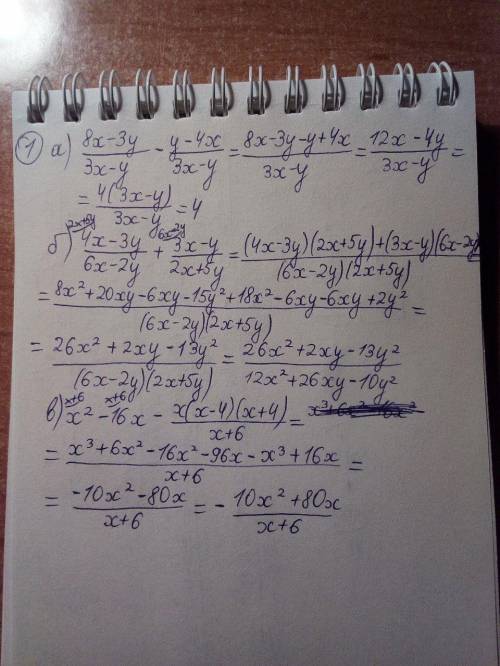 1 а) (8x-3y)/(3x-y) - (y-4x)/(3x-y) = (8x-3y-y+4x)/(3x-y) = (12x-4y)/(3x-y) =
= 4(3x-y)/(3x-y) = 4
б) 2x+5y) (4x-3y)/(6x-2y) + 6x-2y) (3x-y)/(2x+5y) = ((4x-3y)(2x+5y)+(3x-y)(6x-2y))/((6x-2y)(2x+5y))
= (8x²+20xy-6xy-15y²+18x²-6xy-6xy+2y²)/((6x-2y)(2x+5y)) =
= (26x²+2xy-13y²)/((6x-2y)(2x+5y)) = (26x²+2xy-13y²)/(12x²+26xy-10y²)
в) x+6) x² - x+6) 16x - x(x-4)(x+4)/(x+6) =
= (x³+6x²-16x²-96x-x³+16x)/(x+6) =
= (-10x²-80x)/(x+6) = - (10x²+80x)/(x+6)